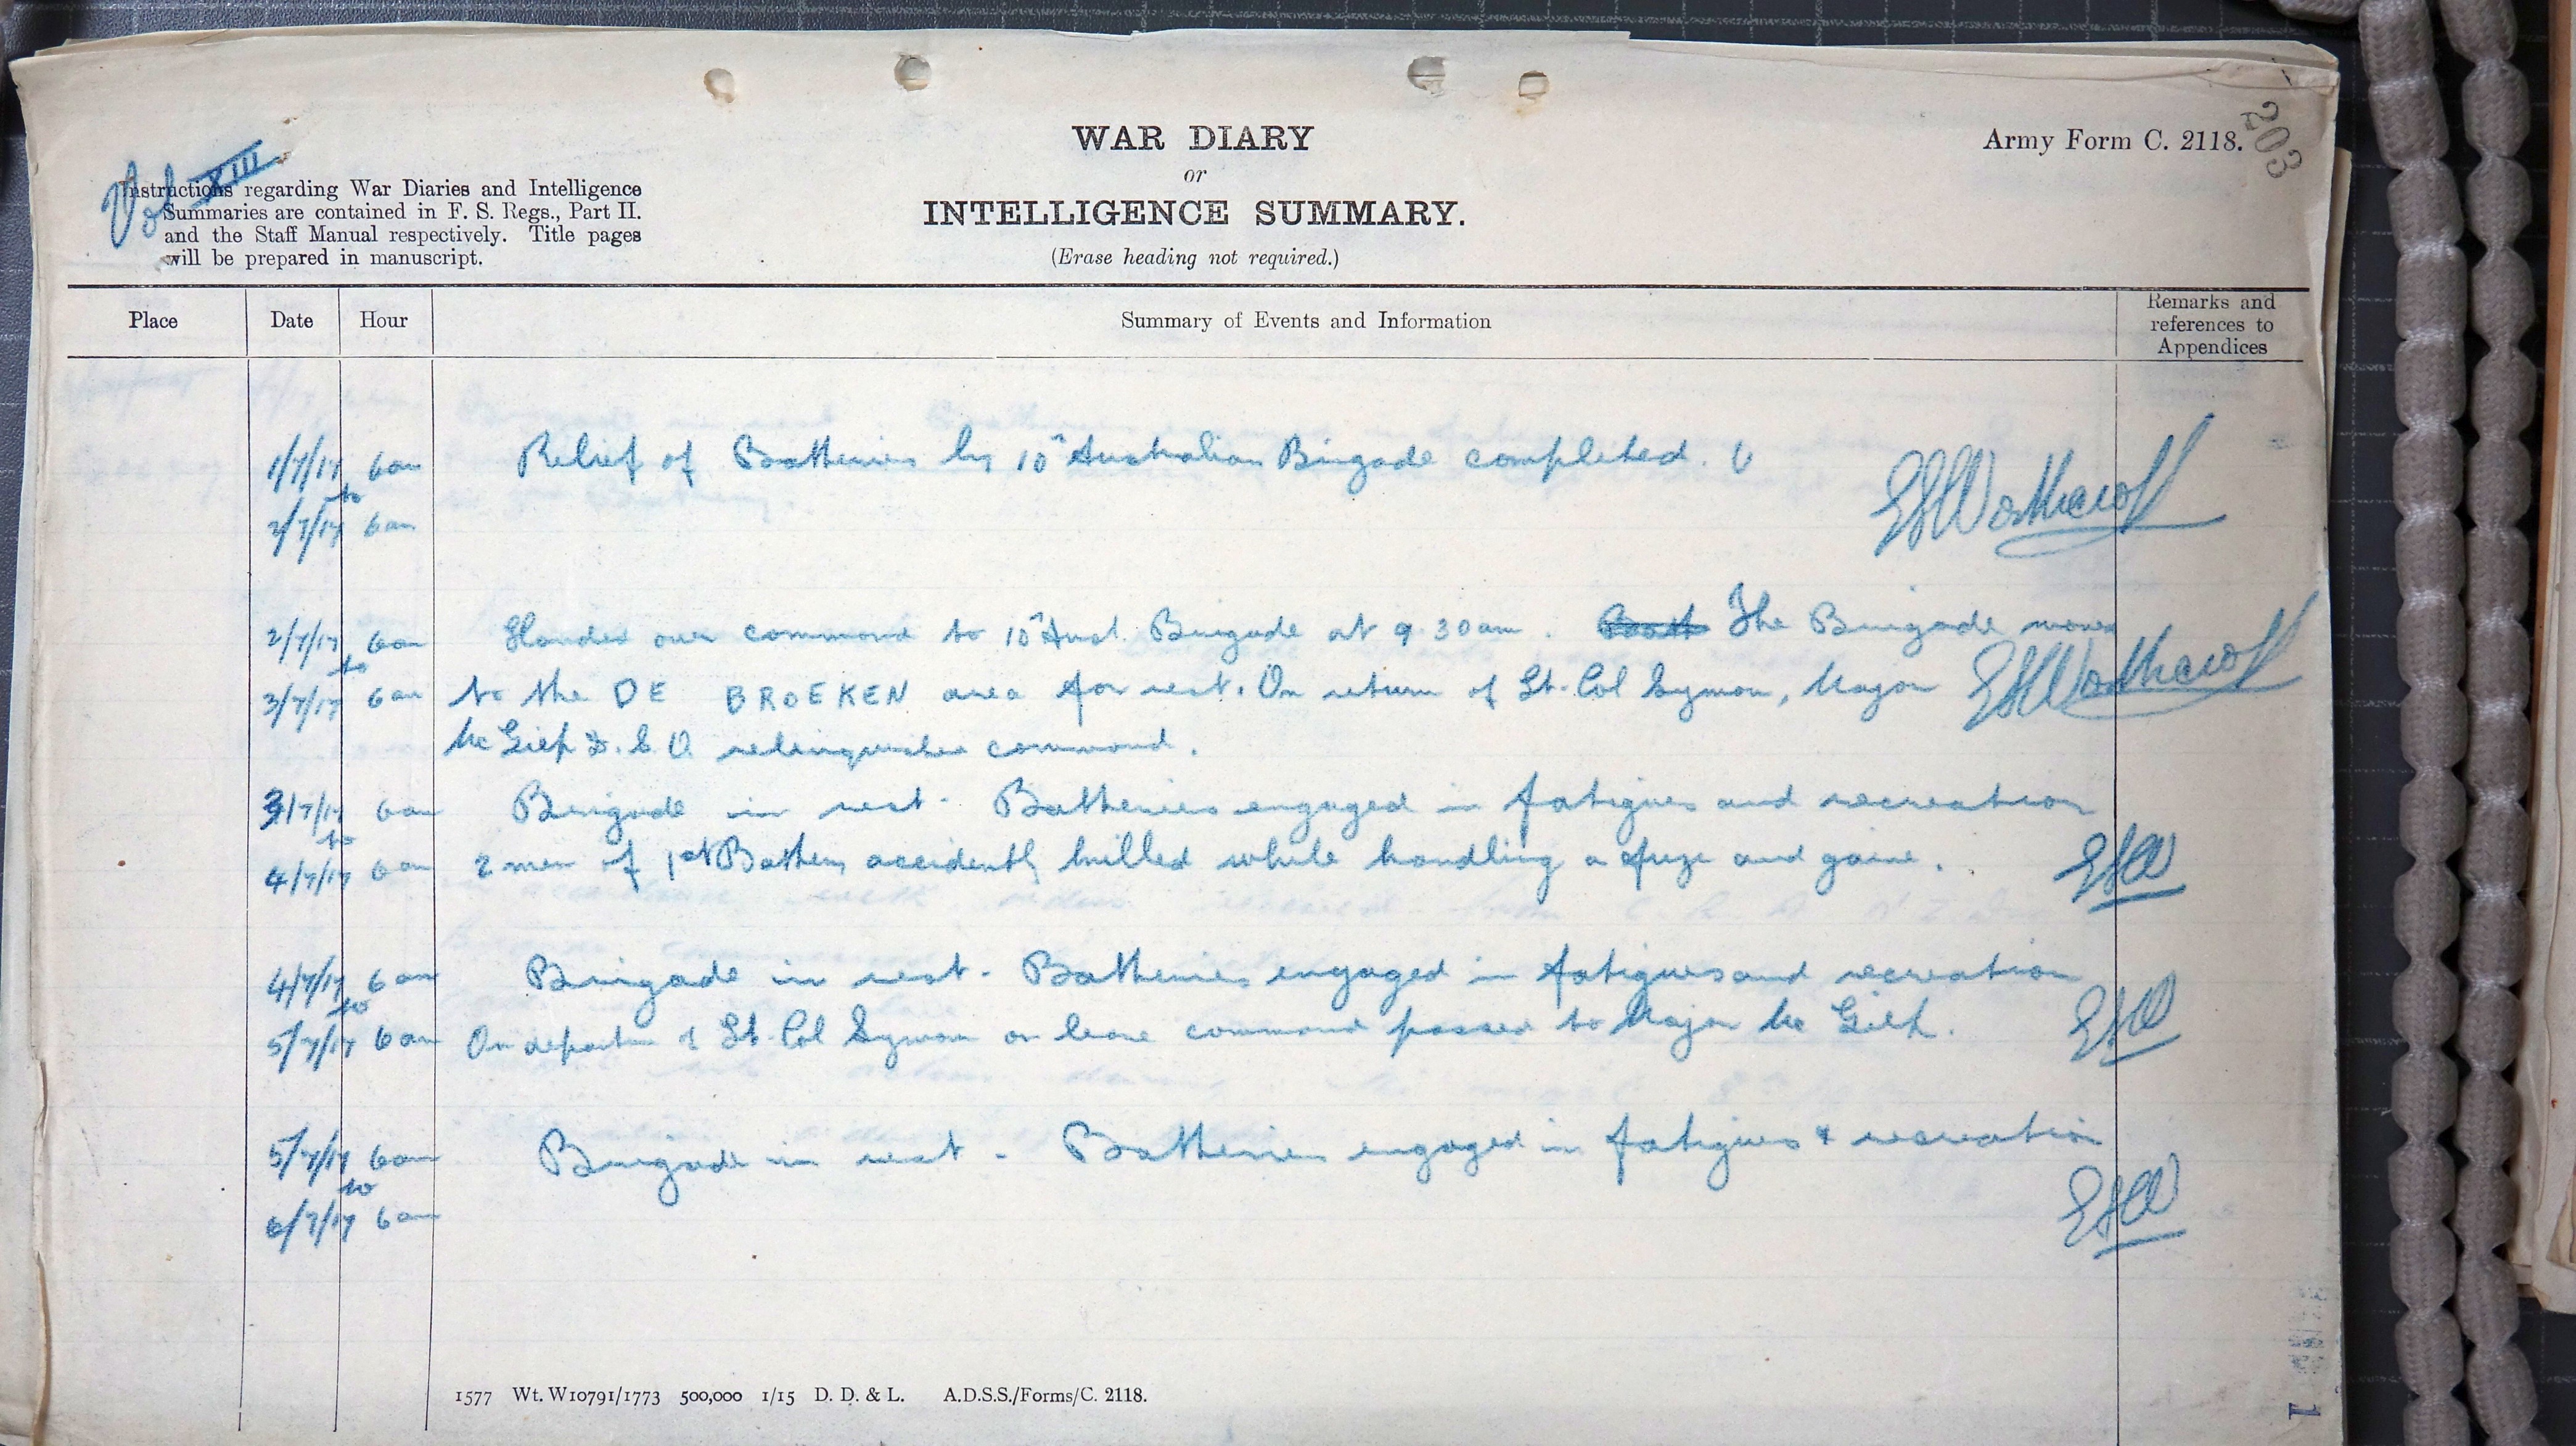 203
WAR DIARY
or
INTELLIGENCE SUMMARY.
(Erase heading not required.)
Army Form C. 2118.
Vol XIII
Instructions regarding War Diaries and Intelligence
Summaries are contained in F. S. Regs., Part II.
and the Staff Manual respectively. Title pages
will be prepared in manuscript.
Place
Date
Hour
Summary of Events and Information
Remarks and
references to
Appendices
1/7/17 6am Relief of Batteries by 10th Australian Brigade completed.
to
2/7/17 6am
2/7/17 6am Handed over command to 10th Aust. Brigade at 9.30am. The Brigade moved
to
3/7/17 6am to the DE BROEKEN area for rest. On return of Lt. Col Symon, Major
Mc Gilp D.S.O relinquishes command.
3/7/17 6am Brigade in rest. Batteries engaged in fatigues and recreation
to
4/7/17 6am 2 men of 1st Battery accidently killed while handling a fuze and gaine.
EHW
4/7/17 6am Brigade in rest. Batteries engaged in fatigues and recreation
to
5/7/17 6am On departure of Lt. Col Symon on leave command passed to Major Mc Gilp.
EHW
5/7/17 6am Brigade in rest. Batteries engaged in fatigues & recreation
to
6/7/17 6am
EHW
1577 Wt. W10791/1773 500,000 1/15 D. D. & L. A.D.S.S./Forms/C. 2118.
1